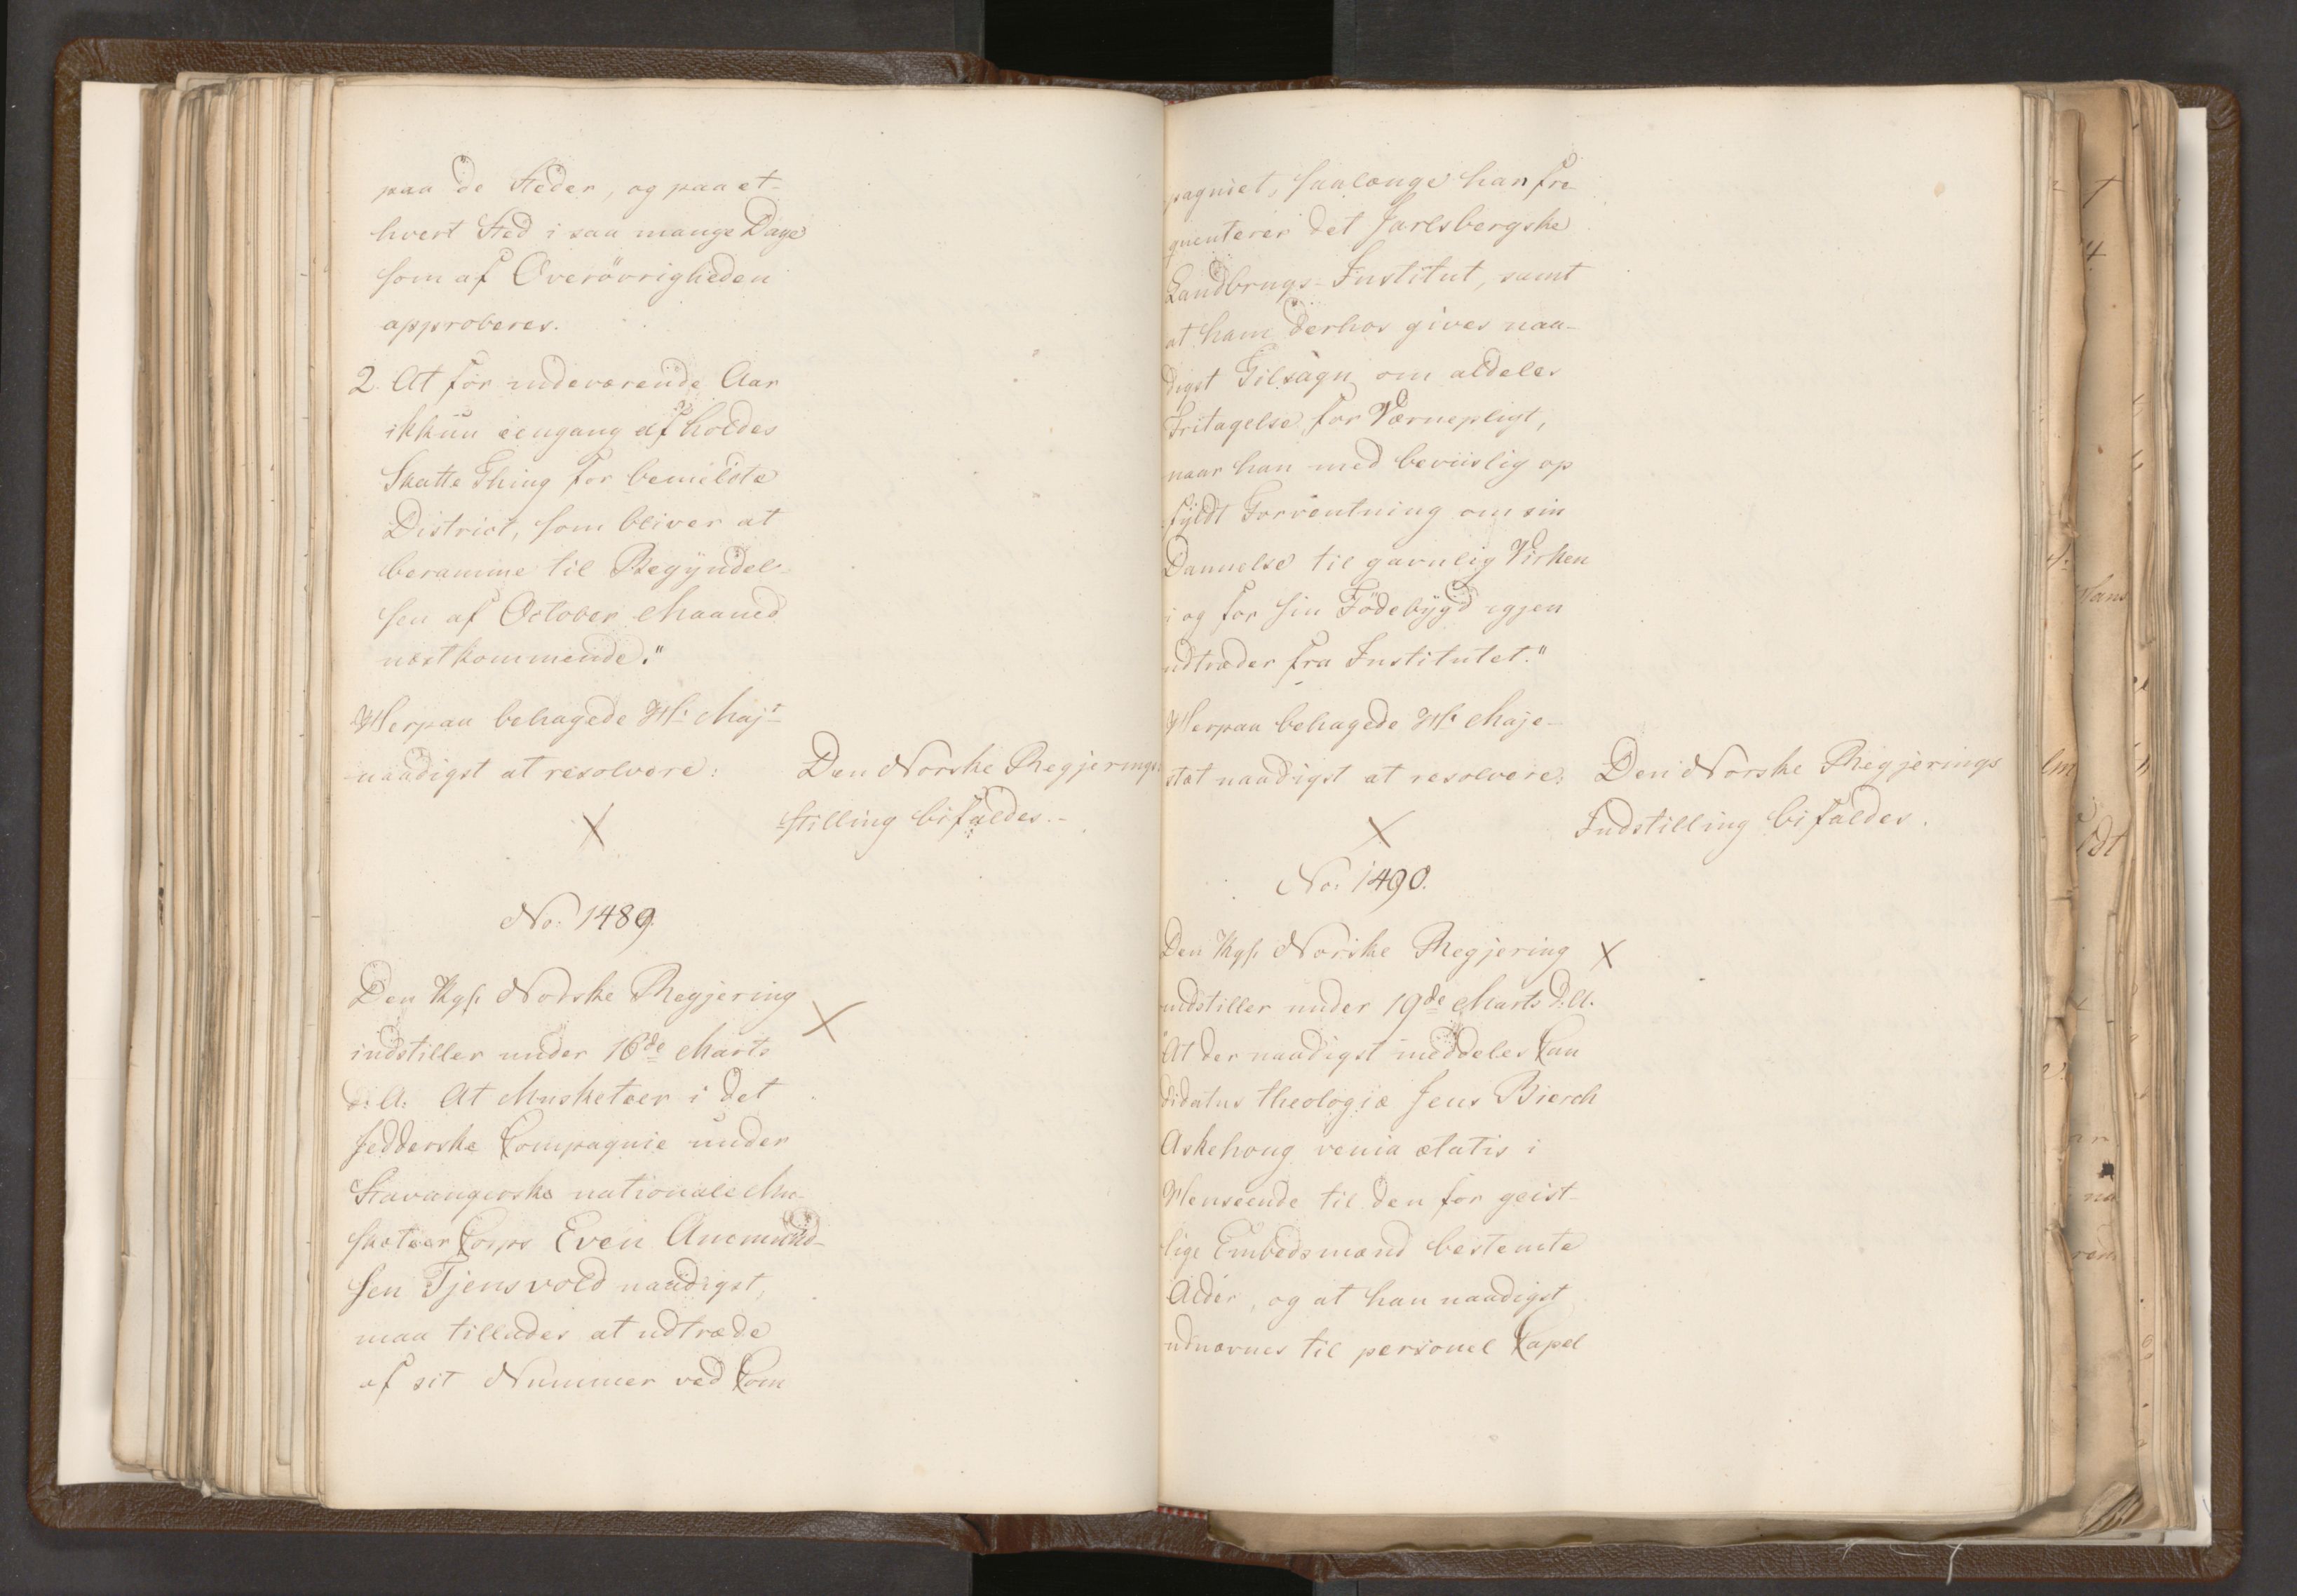 paa de Steder, og paa et-
hvert Sted i saa mange Dage
som af Overövrigheden
approberes.
2. At for indeværende Aar
ikkun eengang afholdes
Skatte Thing for bemeldte
District, som bliver at
beramme til Begyndel-
sen af October Maaned
næstkommende."
Herpaa behagede Hs. Majt
naadigst at resolvere:
Den Norske Regjerings
-stilling bifaldes.-
No. 1489.
Den Kgl. Nodske Regjering
indstiller under 16de Marts
d: A: At Musketeer i det
Jedderske Compagnie under
Stavangerske nationale Mu-
sketeer Corps Even Anemund-
sen Tjensvold naadigst,
maa tillades at udtræde
af sit Nummer ved Com
pagniet, saalænge han fre-
quenterer det Jarlsbergske
Landbrugs-Institut, samt
at ham derhos gives naa-
digst Tilsagn om aldeles
Fritagelse for Værnepligt,
naar han med beviislig op
fyldt Forventning om sin
Dannelse til gavnlig Virken
i og for sin Födebygd igjen
udtræder fra Institutet."
Herpaa behagede Hs. Maje-
stæt naadigst at resolvere:
Den Norske Regjerings
Indstilling bifaldes.
No. 1490.
Den Kgl. Norske Regjering
indstiller under 19de Marts d. A.
"At der naadigst meddeles Can
didatus theologiæ Jens Bierch
Askehoug venia ætatis i
Henseende til den for geist-
lige Embedsmænd bestemte
Alder, og at han naadigst
udnævnes til personel Capel